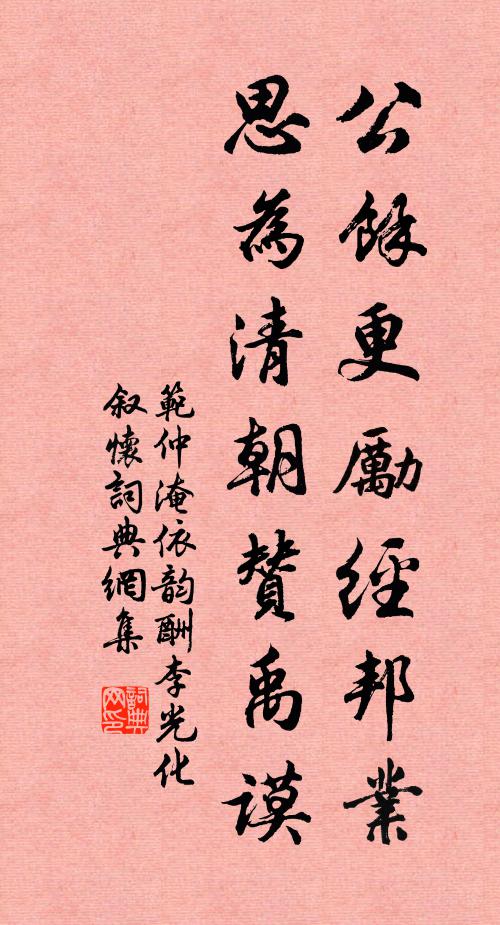 公餘更勵經邦業
思為清朝贊禹謨
範仲淹依韵酬李光化
叙懷詞典網集
詞典網印